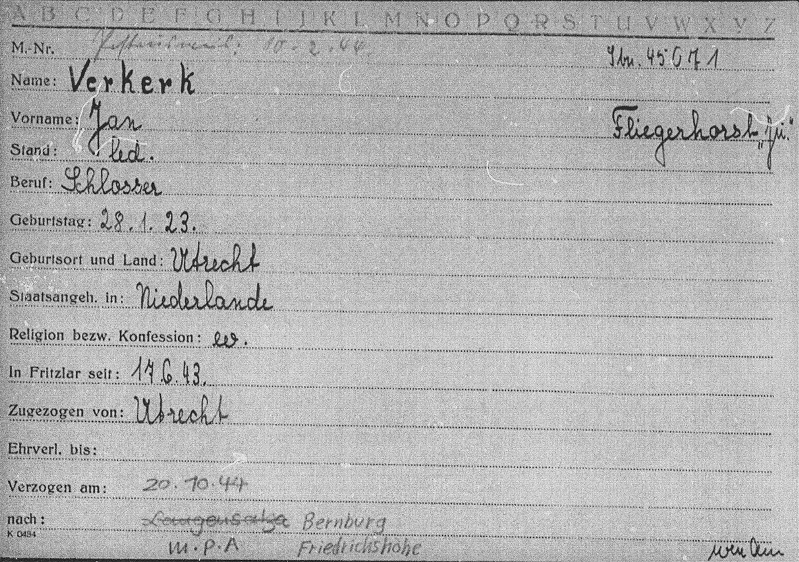 A B C D E F G H I J K L M N O P Q R S T U V W X Y Z
M.-Nr. 10.2.44. 45671
Name: Verkerk
Vorname: Jan Fliegerhorst „Ju."
Stand: led.
Beruf: Schlosser
Geburtstag: 28.1.23.
Geburtsort und Land: Utrecht
Staatsangeh. in: Niederlande
Religion bezw. Konfession: ev.
In Fritzlar seit: 17.6.43.
Zugezogen von: Utrecht
Ehrverl. bis:
Verzogen am: 20.10.44
nach: Langensalza Bernburg
K 0484
M.P.A Friedrichshöhe